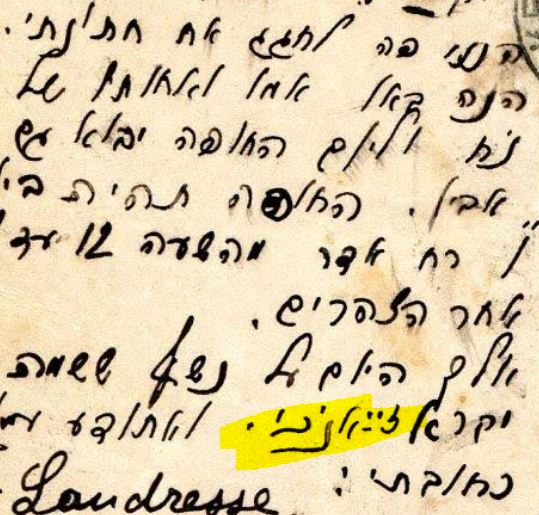 הנני פה לחגג את חתונתי.
הנה באו אמו ואחותו של
נח וליום החופה יבוא גם
אביו. החופה תהיה
ר״ח אדר מהשעה 12 עד
אחר הצהרים.
אלך היום על נשף ששמה
יקרא ואתודע
כתובתי:
Landresse